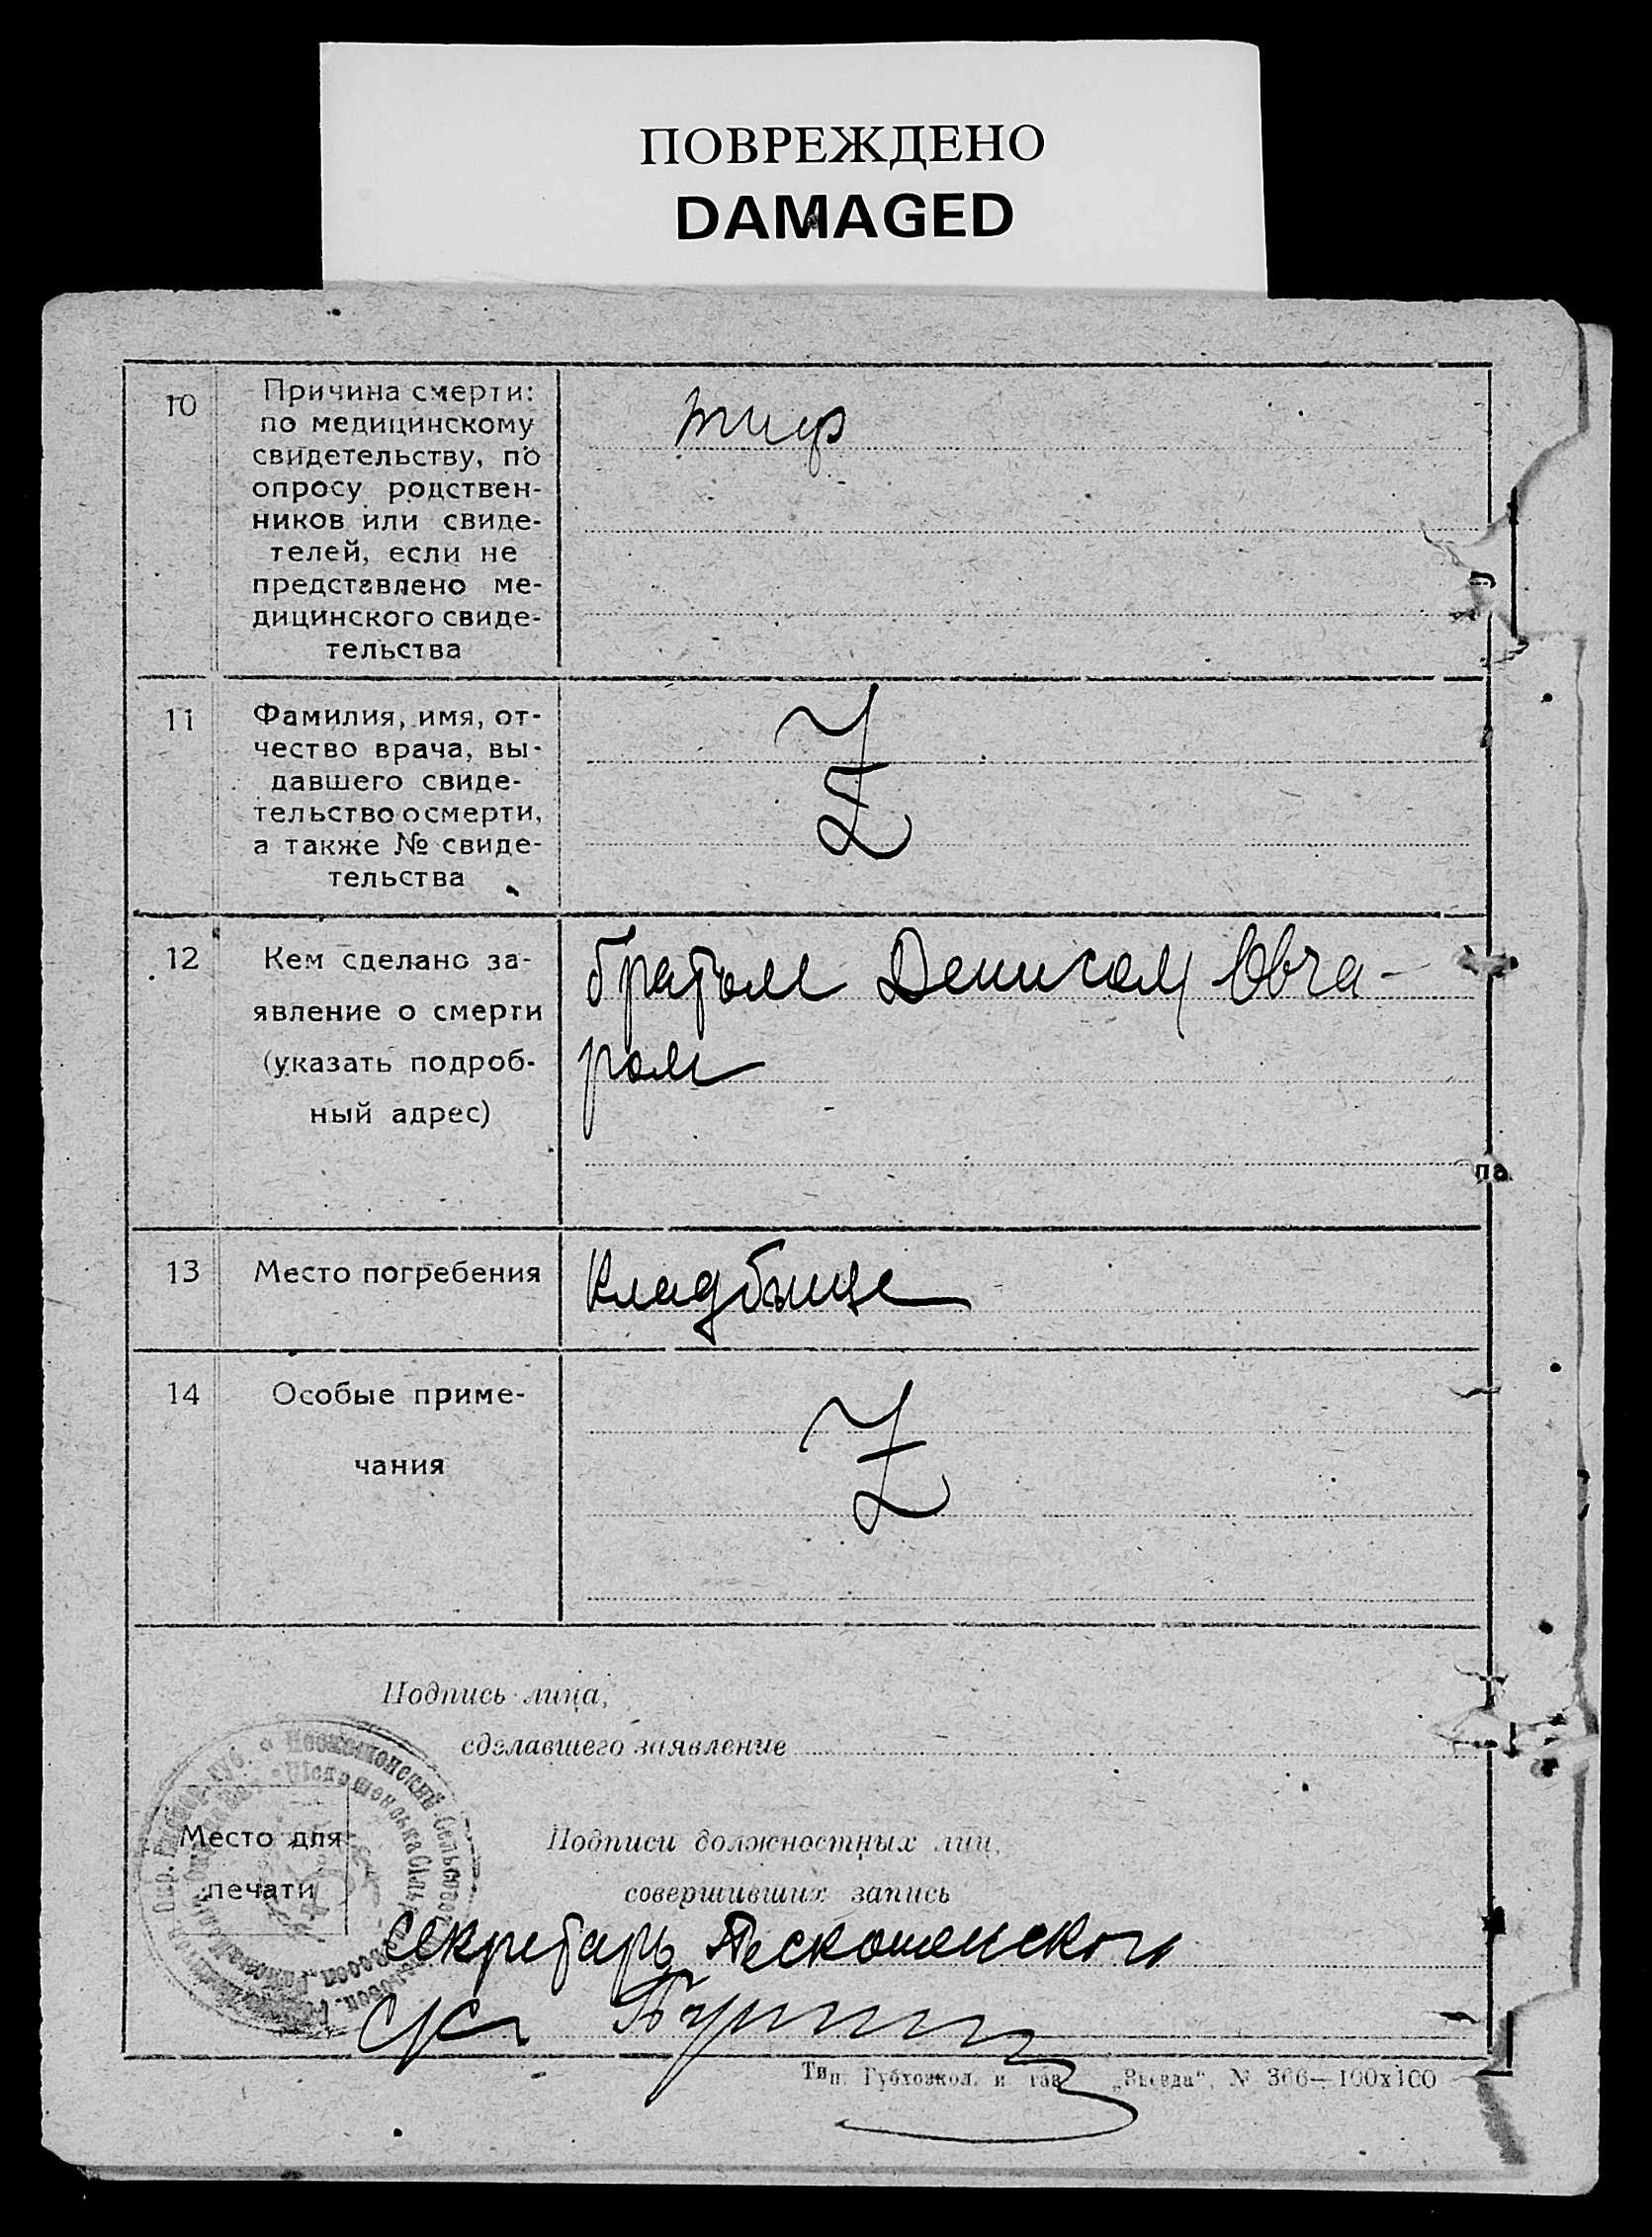 ПОВРЕЖДЕНО
DAMAGED
10
Причина смерти:
по медицинскому
свидетельству, по
опросу родствен-
ников или свиде-
телей, если не
представлено ме-
дицинского свиде-
тельства
тиф
11
Фамилия, имя, от-
чество врача, вы-
давшего свиде-
тельство о смерти,
а также № свиде-
тельства
Z
12
Кем сделано за-
явление о смерти
(указать подроб-
ный адрес)
братом Денисом Овча-
ром
па
13
Место погребения
Кладбище
14
Особые приме-
чания
Z
Подпись лица,
сделавшего заявление
Место для
печати
Подписи должностных лиц,
совершивших запись
Секретарь Пескошенского
с/с
Тип. Губхозкол. и газ. „Звезда“, № 366—100х100